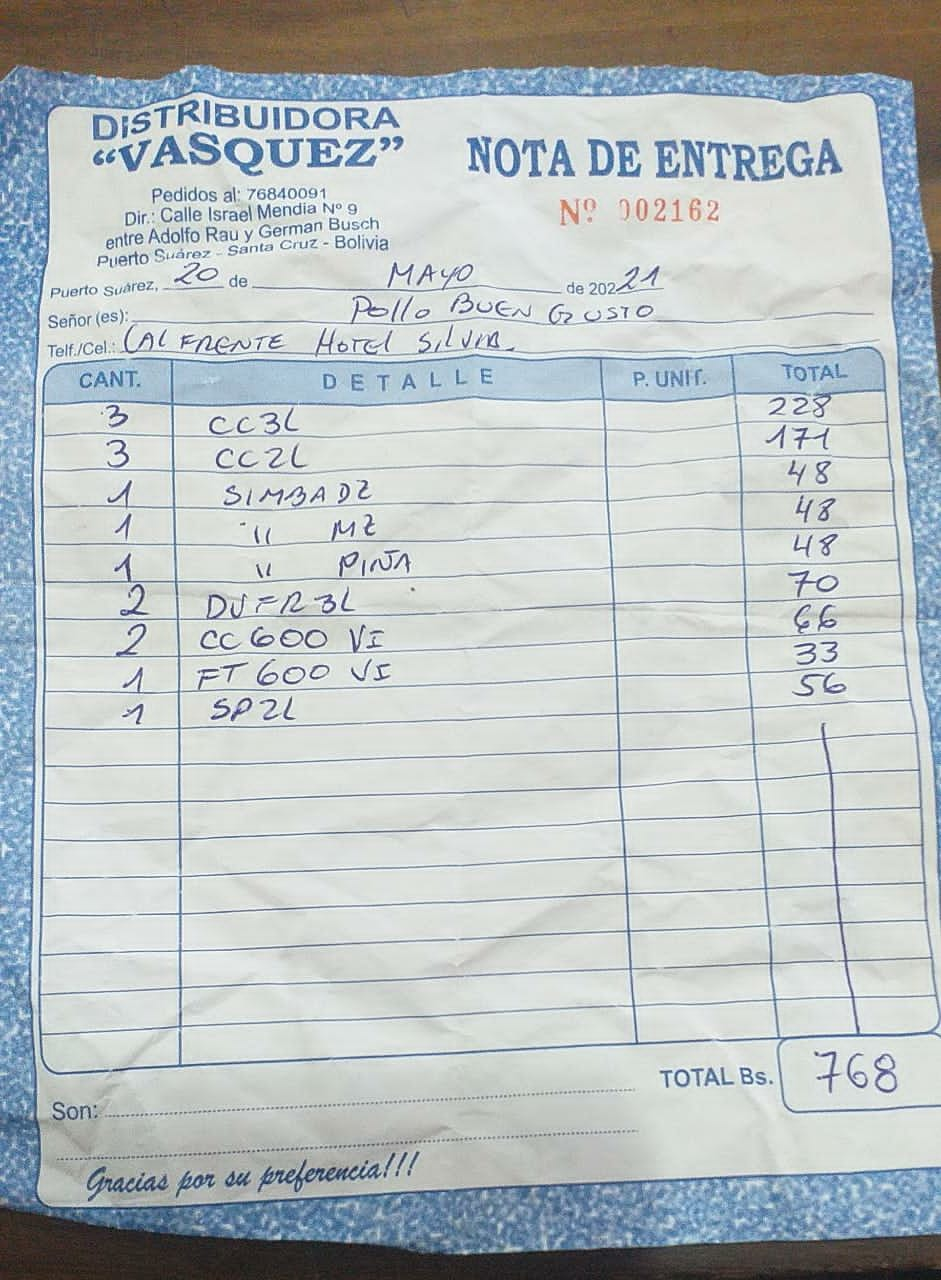 DISTRIBUIDORA
“VASQUEZ”
Pedidos al: 76840091
Dir.: Calle Israel Mendia Nº 9
entre Adolfo Rau y German Busch
Puerto Suárez - Santa Cruz - Bolivia
NOTA DE ENTREGA
Nº 002162
Puerto Suárez, 20 de MAYO de 20221
Señor (es): Pollo BUEN GUSTO
Telf./Cel.: (AL FRENTE HOTEL SILVIA
CANT. DETALLE P. UNIT. TOTAL
3 CC3L 228
3 CC2L 171
1 SIMBADZ 48
1 " MZ 48
1 " PIÑA 48
2 DVFR3L 70
2 CC600 VI 66
1 FT600 VI 33
1 SP2L 56
TOTAL Bs. 768
Son:
Gracias por su preferencia!!!